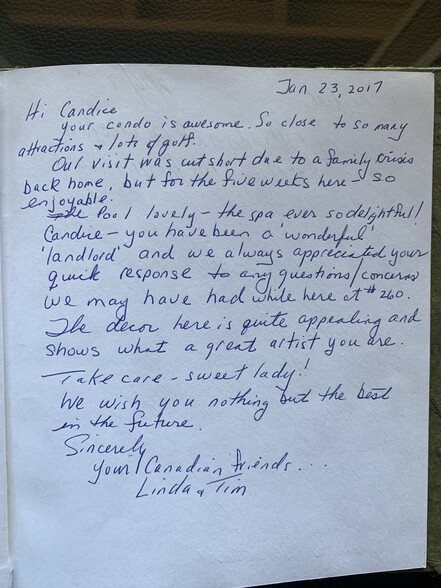 Jan 23, 2017
Hi Candice
your condo is awesome. So close to so many
attractions + lots of golf.
Our visit was cut short due to a family crisis
back home, but for the five weeks here - so
enjoyable.
The Pool lovely - the spa ever so delightful!
Candice - you have been a 'wonderful'
'landlord' and we always appreciated your
quick response to any questions/concerns
we may have had while here at #260.
The decor here is quite appealing and
shows what a great artist you are.
Take care - sweet lady!
We wish you nothing but the best
in the future.
Sincerely
your Canadian friends...
Linda & Tim